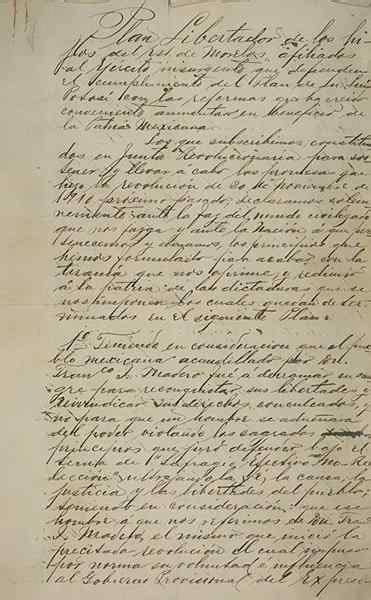 Plan Libertador de los hi-
jos del Est. de Morelos, afiliados
al Ejército insurgente que defienden
el cumplimiento del Plan de San Luis
Potosí con las reformas que ha creído
conveniente aumentar en beneficio de
la Patria Mexicana.
Los que subscribimos, constitui-
dos en Junta Revolucionaria para sos-
tener y llevar a cabo las promesas que
hizo la revolución de 20 de Noviembre de
1910 próximo pasado, declaramos solem-
nemente ante la faz del mundo civilizado
que nos juzga y ante la Nación á que per-
tenecemos y amamos, los principios que
hemos formulado para acabar con la
tiranía que nos oprime y redimir
á la patria de las dictaduras que se
nos imponen los cuales quedan deter-
minados en el siguiente Plan:
1º Teniendo en consideración que el pue-
blo mexicano acaudillado por Dn.
Franco. I. Madero fué á derramar su san-
gre para reconquistar sus libertades y
reivindicar sus derechos conculcados, y
no para que un hombre se adueñara
del poder violando los sagrados
principios que juró defender bajo el
lema de "Sufragio Efectivo" "No Ree-
lección" ultrajando la fé, la causa, la
justicia y las libertades del pueblo;
teniendo en consideración: que ese
hombre á que nos referimos es Dn. Fran-
I. Madero, el mismo que inició la
precitada revolución el cual impuso
por norma su voluntad é influencia
al Gobierno Provisional del Ex Presi-